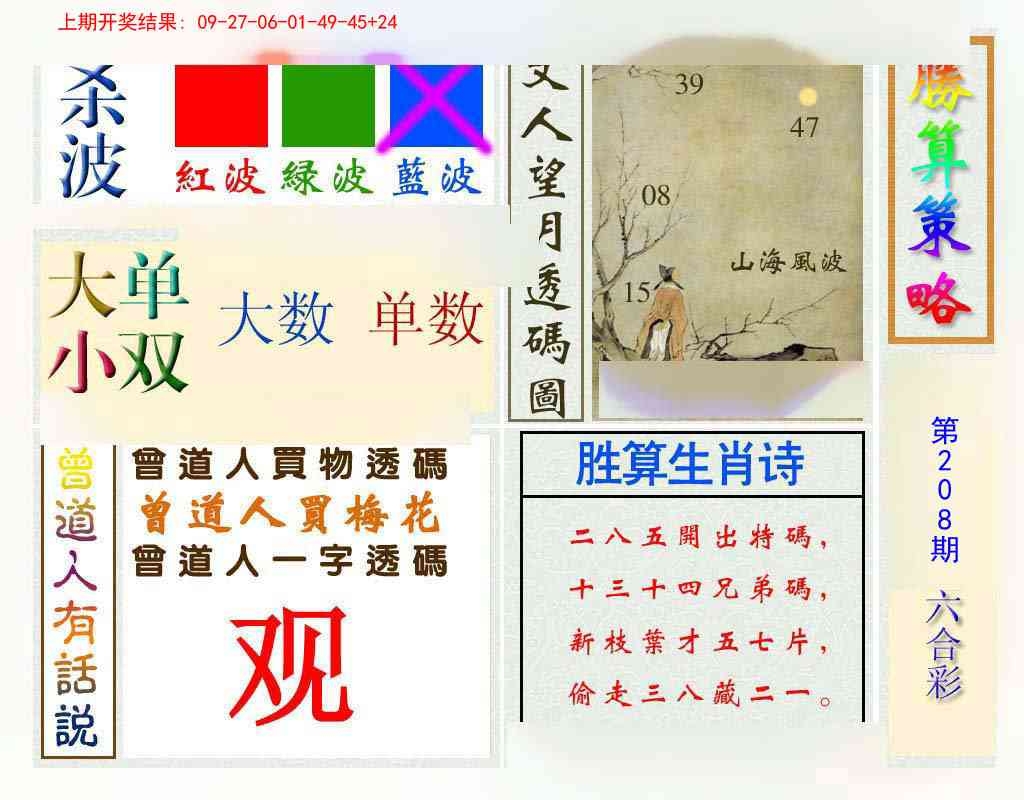 上期开奖结果：09-27-06-01-49-45+24
杀波
紅波 绿波 藍波
大单
小双
大数 单数
文人望月透碼圖
39
47
08
山海風波
15
勝算策略
第208期
六合彩
曾道人有話説
曾道人買物透碼
曾道人買梅花
曾道人一字透碼
观
胜算生肖诗
二八五開出特碼，
十三十四兄弟碼，
新枝葉才五七片，
偷走三八藏二一。